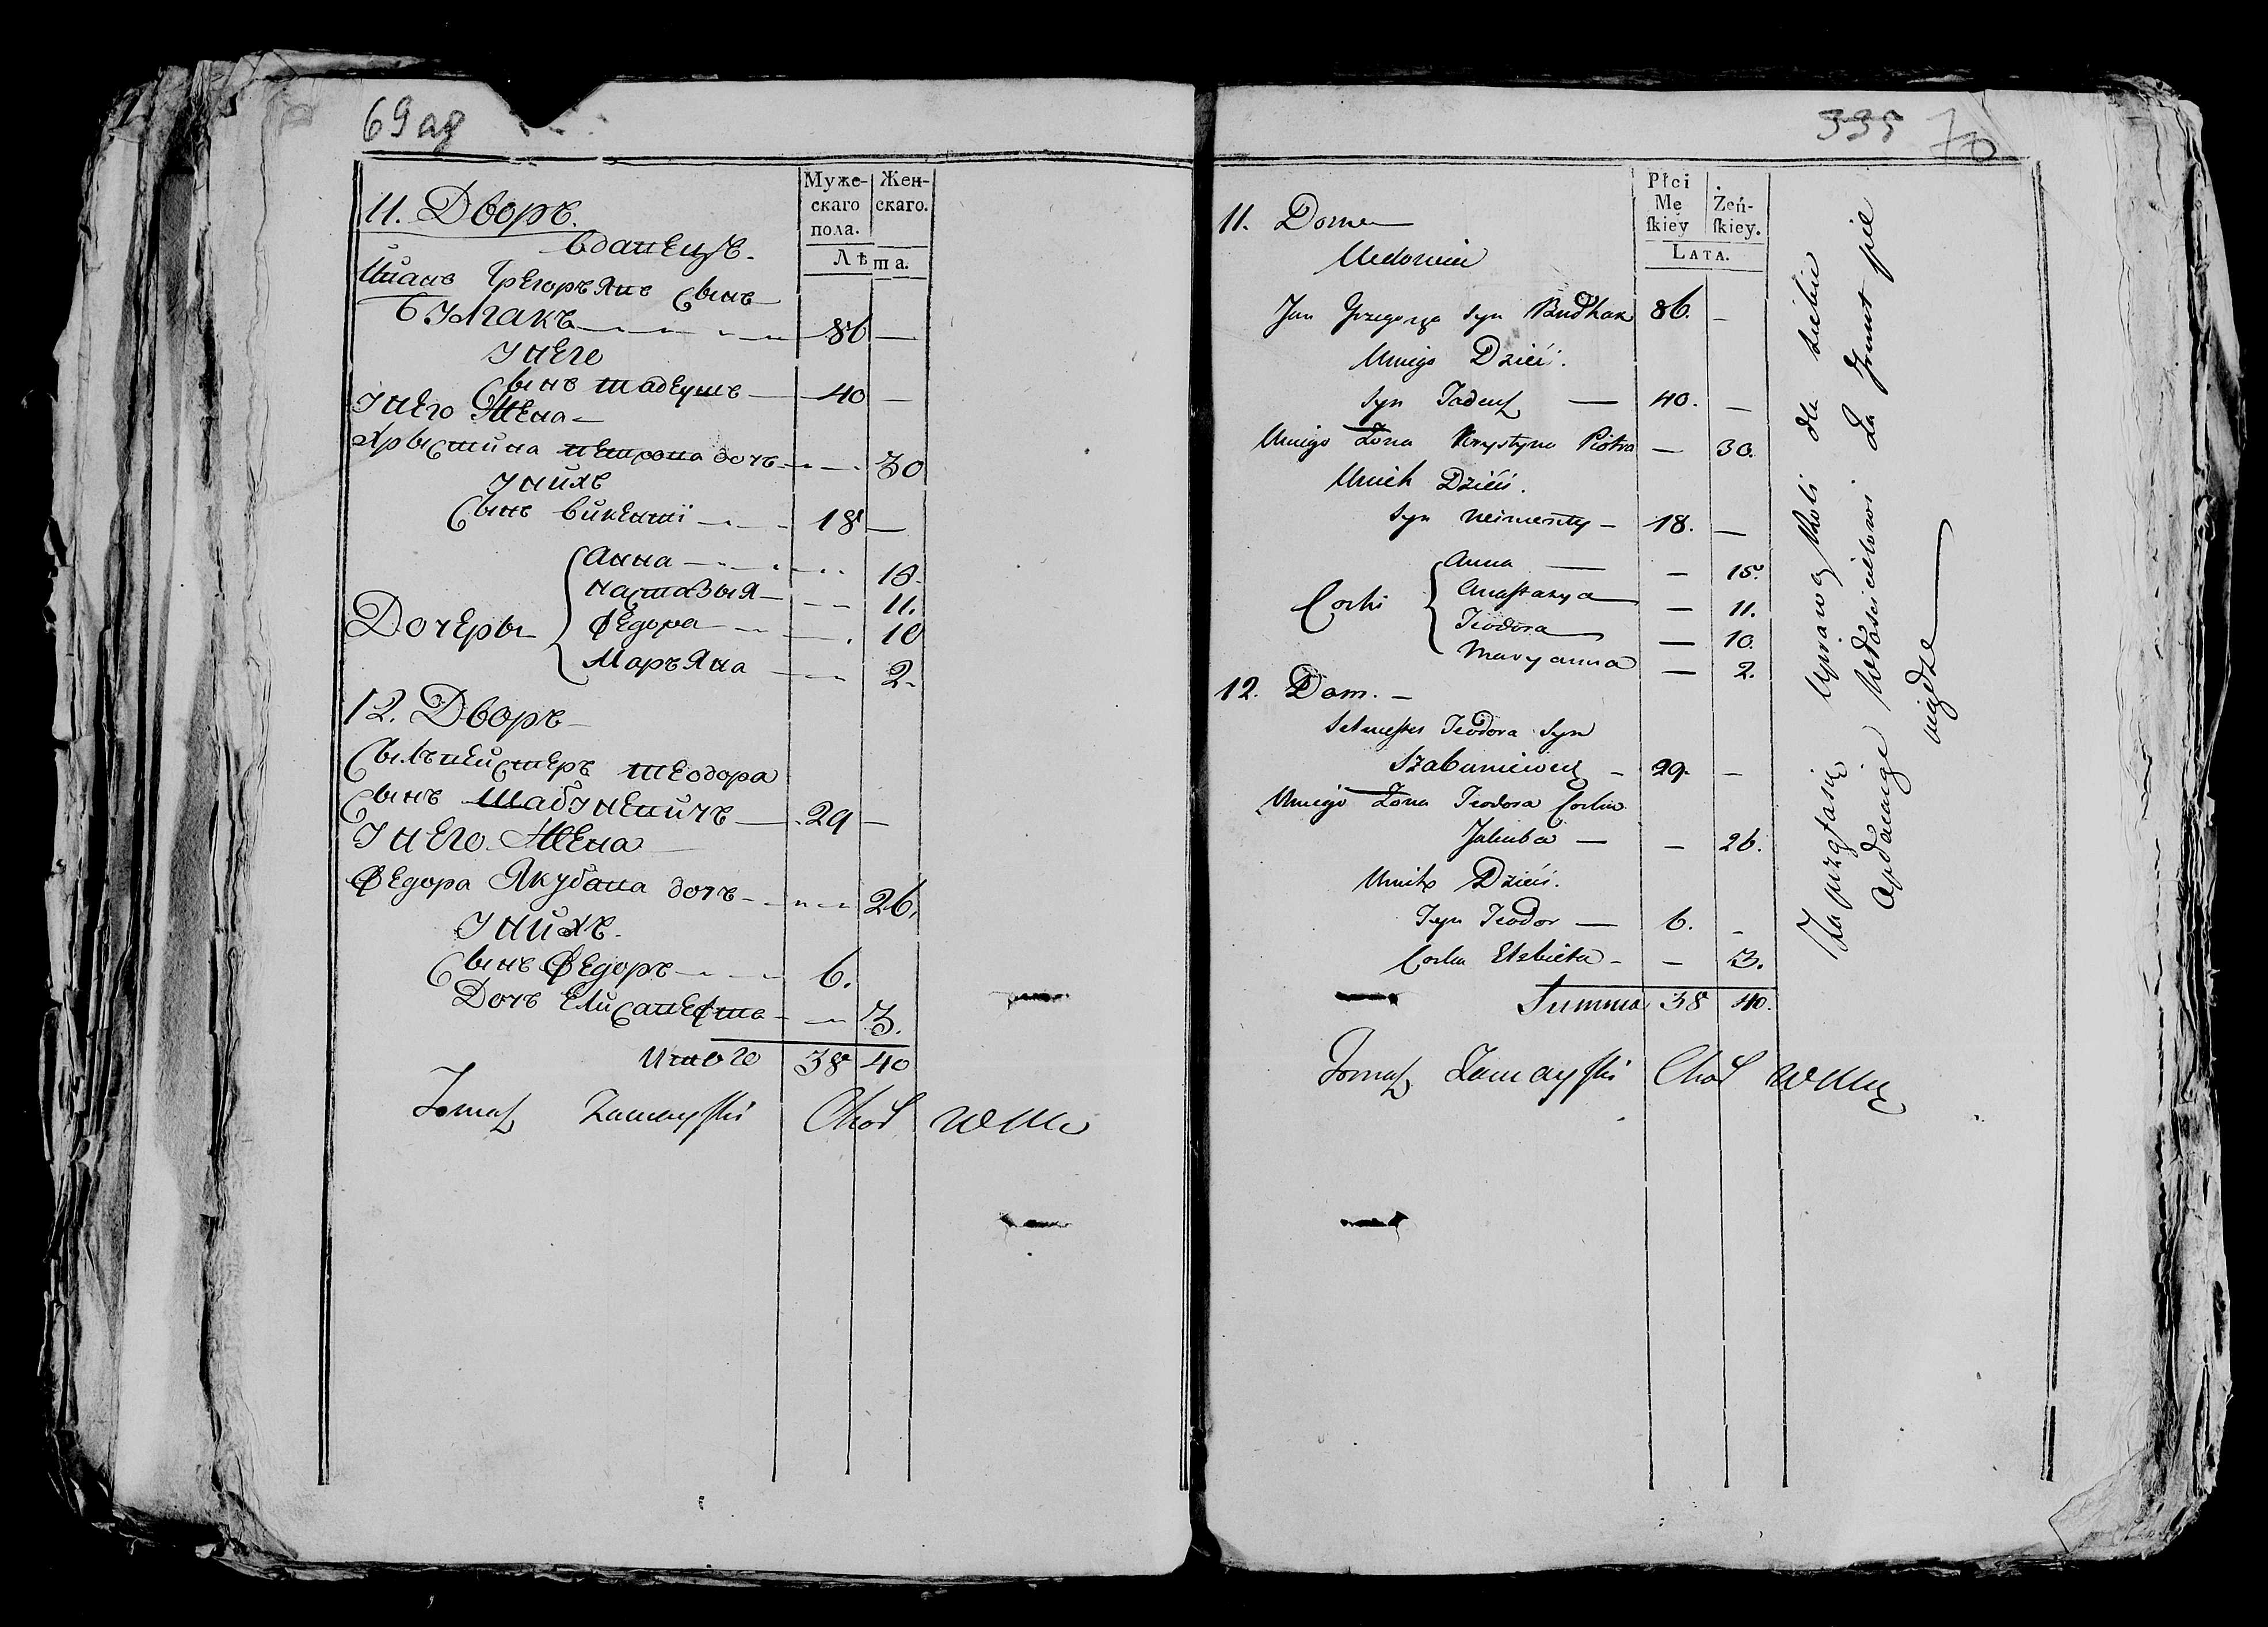 69 аδ
Муже-
скаго
пола.
Жен-
скаго.
Лѣта.
11. Дворъ.
вдовецъ.
Иванъ Грегоръявъ Сынъ
Булгакъ 86 —
У него
Сынъ тадеушъ — 40 —
У него Жена —
Хрыстина петрова дочь 30
У нихъ
Сынъ викентi 18 —
Дочеры
Анна 15.
настазыя 11.
Федора 10
Маръяна 2.
12. Дворъ
Сылъвейстеръ теодора
Сынъ Шабуневичъ — 29 —
У него Жена
Федора Якубава дочъ 26.
У нихъ.
Сынъ Федоръ 6.
Дочъ Елисавефта 3.
Итого 38 40
Tomasz Zamayski Chor WMu
335 70
Płci
Mę
skiey
Żeń-
skiey.
LATA.
11. Dom
Wdowiec
Jan Grzegorza syn 86. —
U niego Dzieci.
Syn Tadeusz — 40. —
U niego Żona Krystyna Piotra — 30.
U nich Dzieci.
Syn — 18. —
Corki
Anna — — 15.
Anastazya — 11.
Teodora — 10.
Maryanna — 2.
12. Dom. —
Selwester Teodora Syn
Szabuniewicz — 29. —
U niego Żona Teodora Corka
Jakuba — — 26.
U nich Dzieci.
Syn Teodor — 6. —
Corka Elzbieta — — 3.
Summa 38 40.
Tomasz Zamayski Chor WMu
Za przysiąsie Uprawą Roli dla siebie
a Włascicielowi Za Grunt pie
niądze